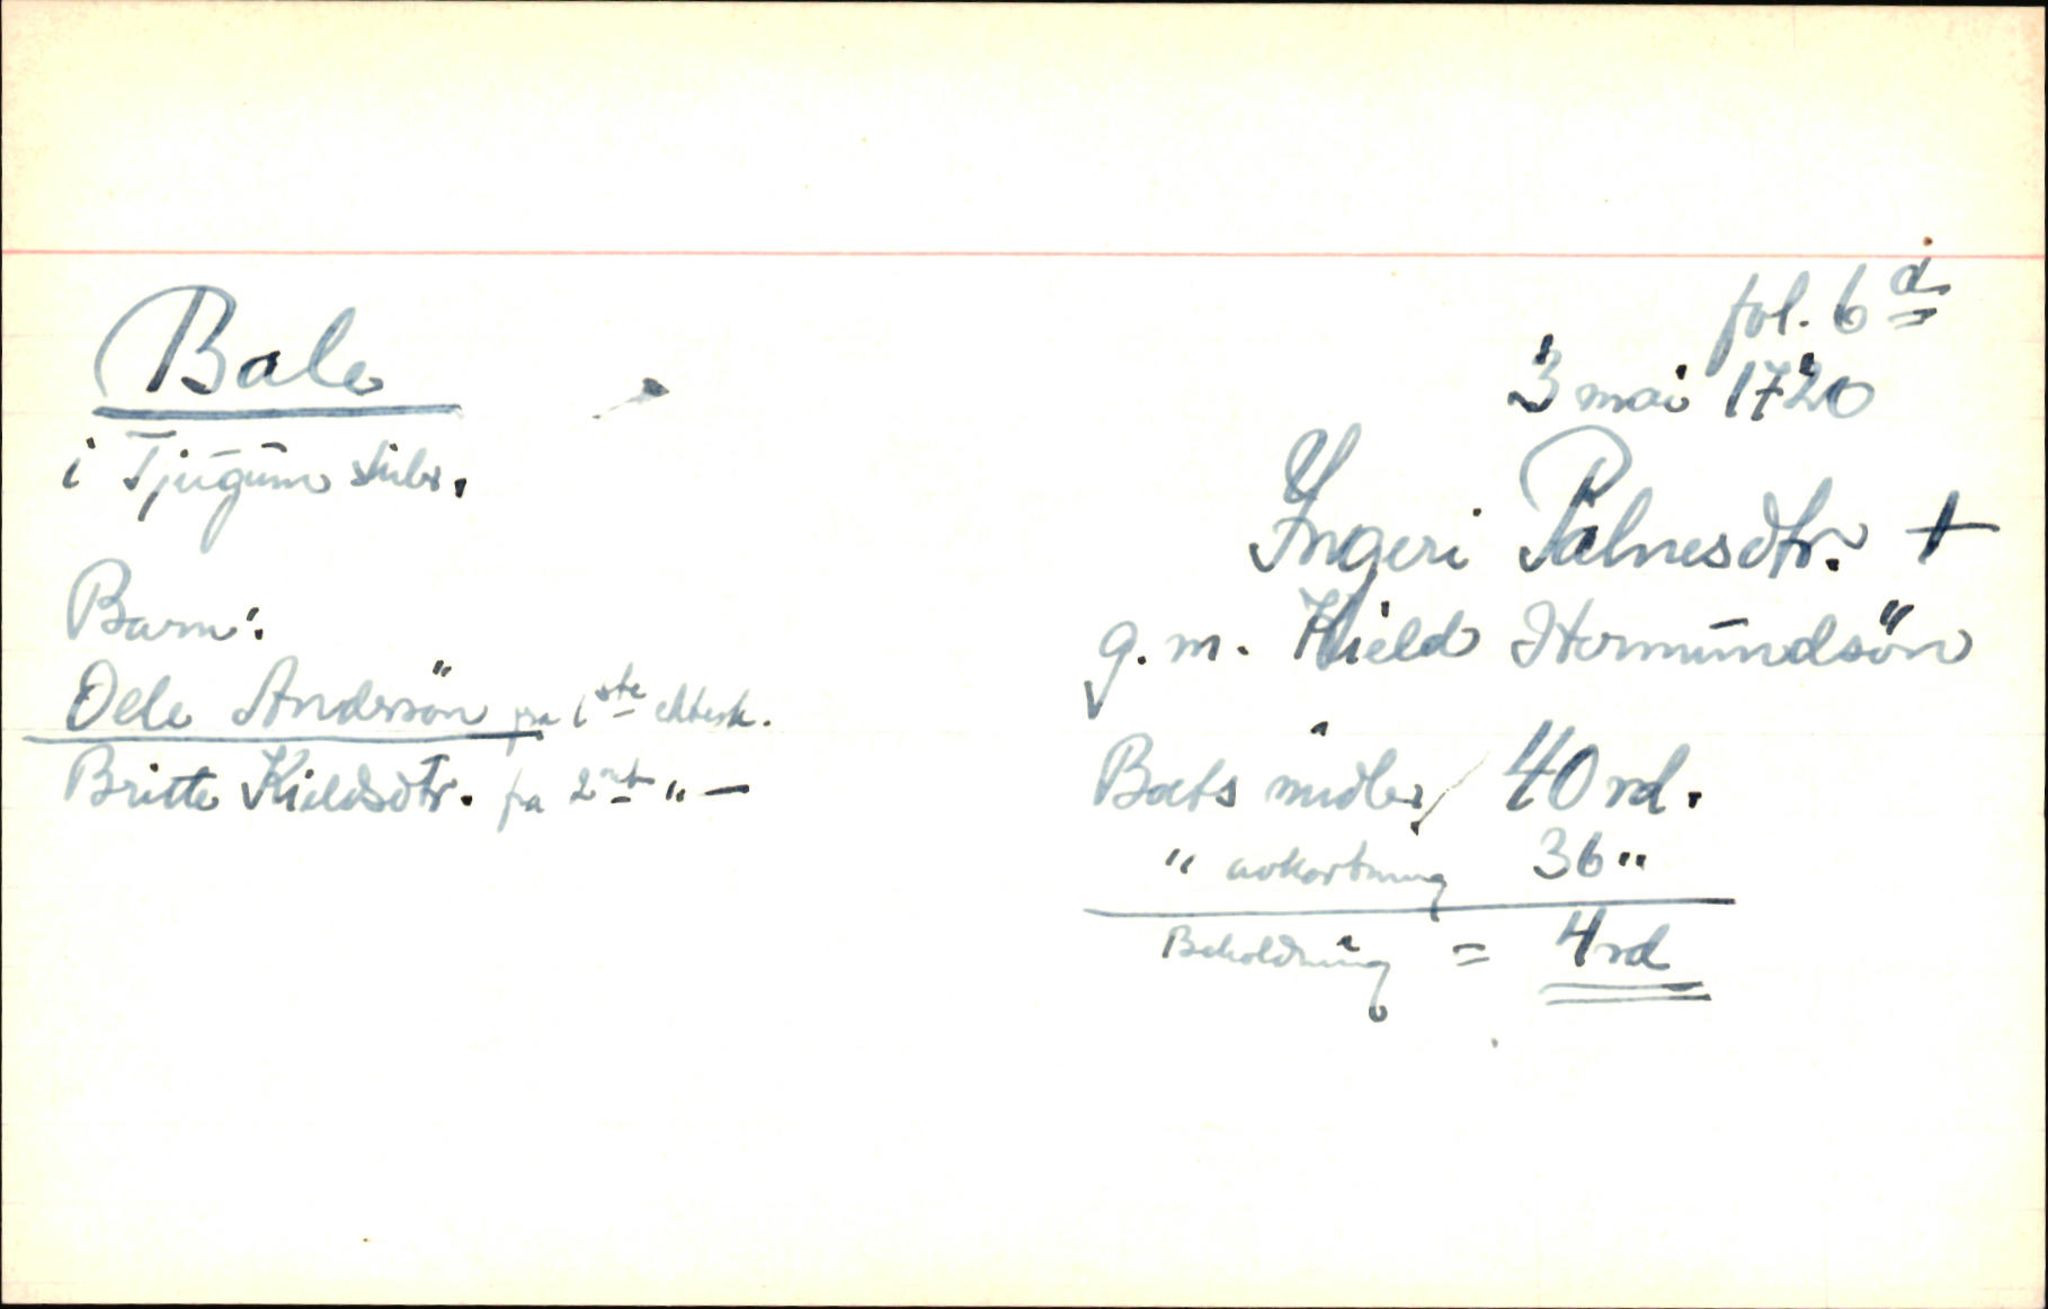 fol. 6 a
Bale
3 mai 1720
i Tjugum skibr.
Ingeri Palnesdtr. +
Barn:
g. m. Kield Hermundsön
Oele Andersön fra 1ste ektesk.
Britte Kieldsdtr. fra 2net " —
Boets midler 40 rd.
" avkortning 36 "
Beholdning = 4 rd